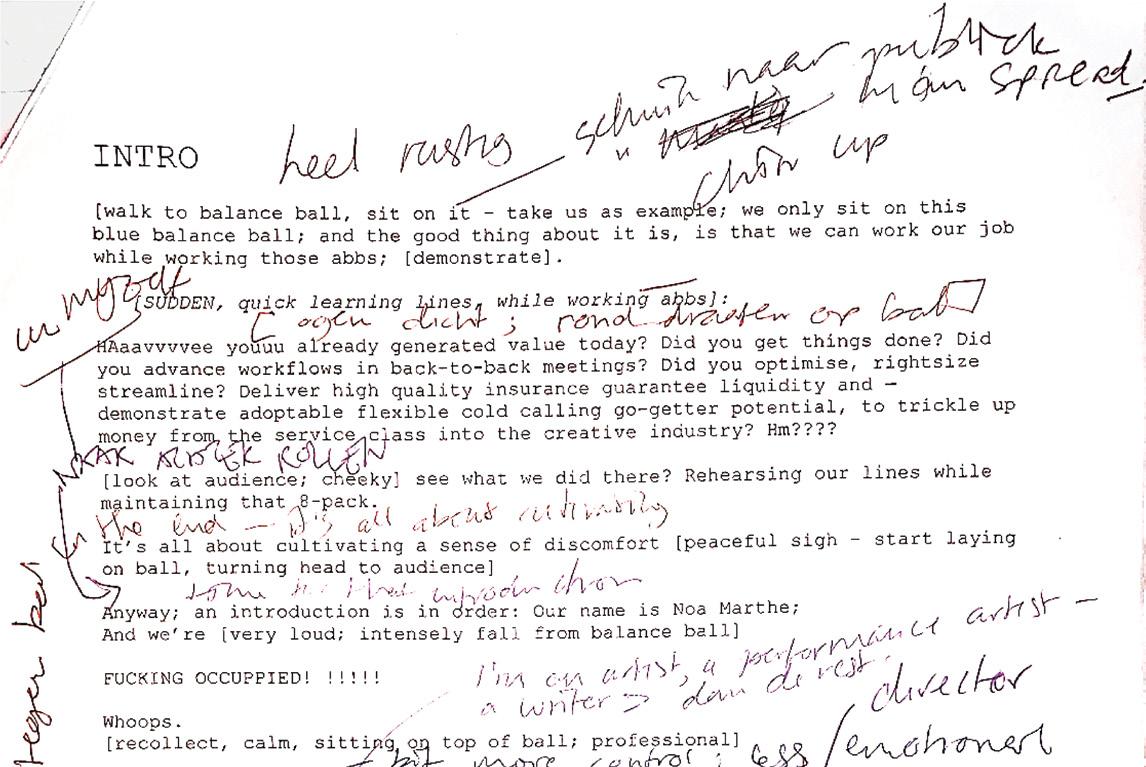 schuin naar publiek
man spread
INTRO heel rustig
chin up
[walk to balance ball, sit on it – take us as example; we only sit on this
blue balance ball; and the good thing about it is, is that we can work our job
while working those abbs; [demonstrate].
myself
[SUDDEN, quick learning lines, while working abbs]:
[ogen dicht; rond draaien op bal]
HAaavvvvee youuu already generated value today? Did you get things done? Did
you advance workflows in back-to-back meetings? Did you optimise, rightsize
streamline? Deliver high quality insurance guarantee liquidity and –
demonstrate adoptable flexible cold calling go-getter potential, to trickle up
money from the service class into the creative industry? Hm????
NAAR ROLLEN
[look at audience; cheeky] see what we did there? Rehearsing our lines while
maintaining that 8-pack.
In the end — it's all about cultivating
It's all about cultivating a sense of discomfort [peaceful sigh – start laying
on ball, turning head to audience]
introduction
Anyway; an introduction is in order: Our name is Noa Marthe;
And we're [very loud; intensely fall from balance ball]
FUCKING OCCUPPIED! !!!!!
I'm an artist, a performance artist –
a writer > dan de rest.
director
Whoops.
[recollect, calm, sitting on top of ball; professional]
bit more control; less / emotioneel